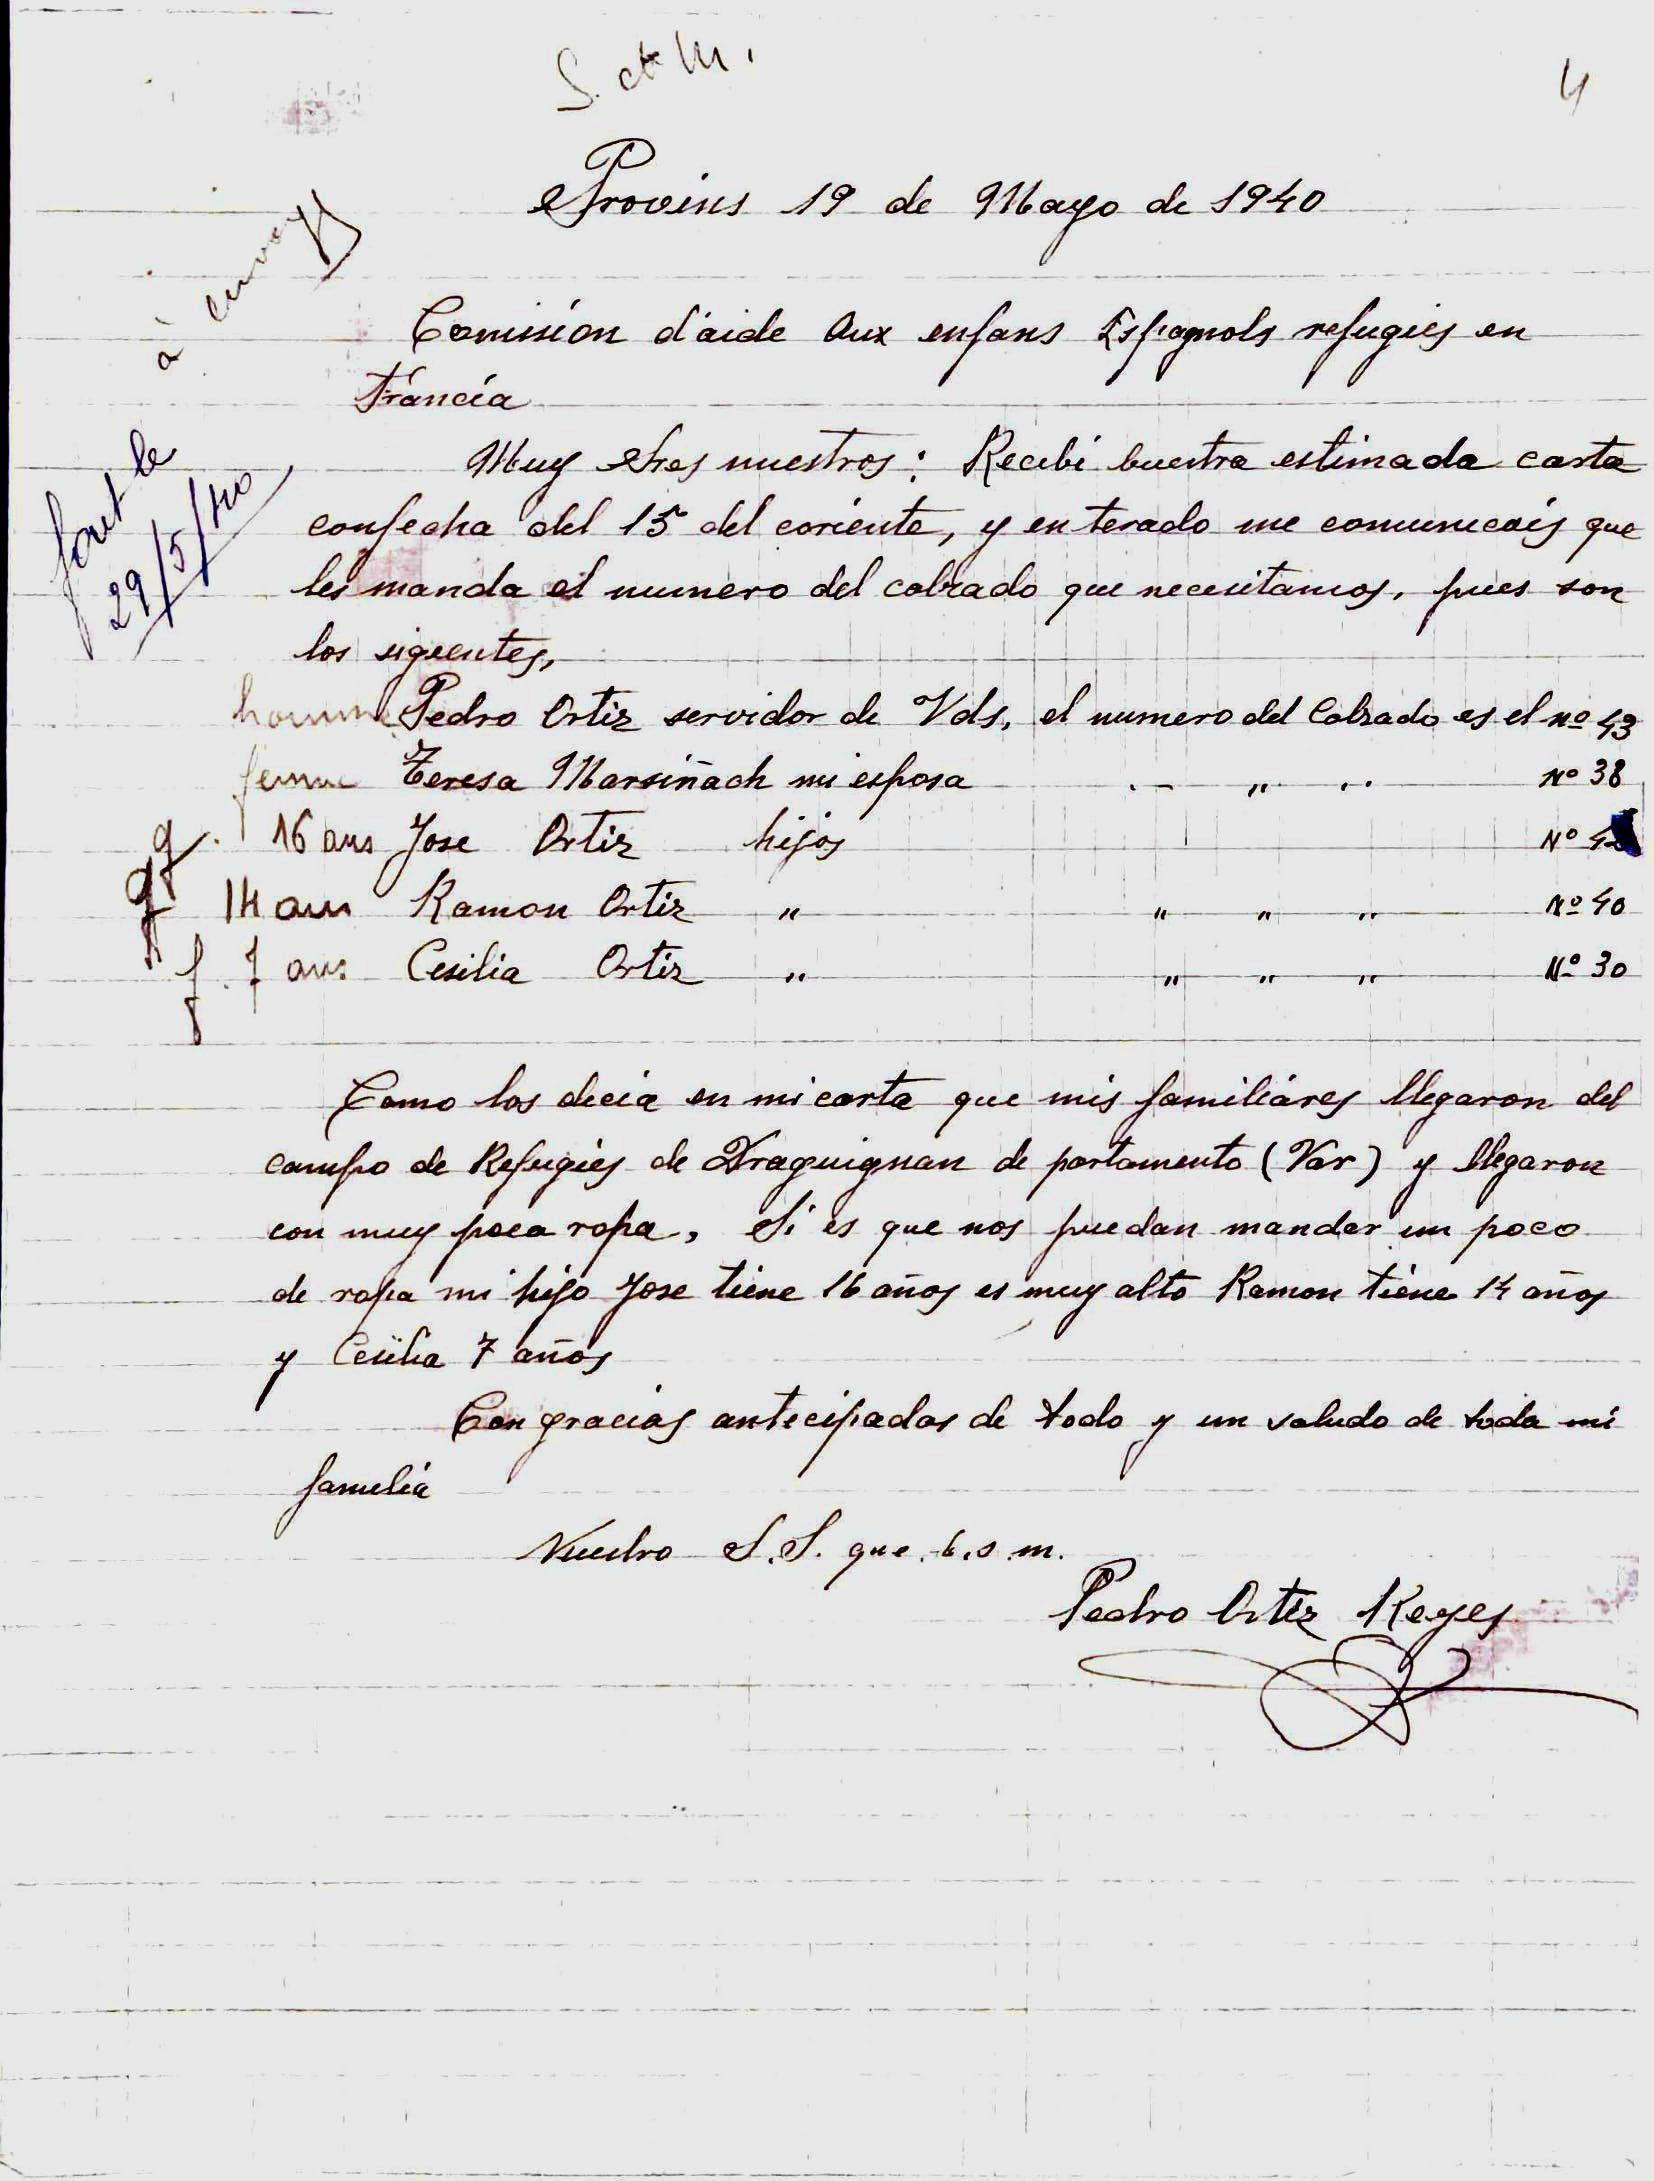 S. et M.
4
Provins 19 de Mayo de 1940
à envoyer
Comisión d'aide Aux enfans Espagnols refugies en
Fráncia
fait le
29/5/40
Muy Sres nuestros: Recibi buestra estimada carta
confecha del 15 del coriente, y en terado me comunicais que
les manda el numero del calzado que necesitamos, pues son
los siguentes,
homme Pedro Ortiz servidor de Vds, el numero del Calzado es el nº 43
femme Teresa Marsiñach mi esposa " " " Nº 38
g. 16 ans Jose Ortiz hijos Nº
g 14 ans Ramon Ortiz " " " " Nº 40
f. 7 ans Cesilia Ortiz " " " " Nº 30
Como los decia en mi carta que mis familiáres llegaron del
campo de Refugiés de Draguignan de partamento (Var) y llegaron
con muy poca ropa, Si es que nos puedan mandar un poco
de ropa mi hijo Jose tiene 16 años es muy alto Ramon tiene 14 años
y Cesilia 7 años
Con gracias antecipadas de todo y un saludo de toda mi
familia
Vuestro S.S. que. b.s.m.
Pedro Ortiz Reyes